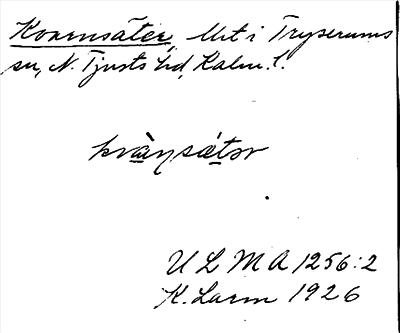 Kvarnsäter, Urt i Tryserums
sn, N. Tjusts hd, Kalm. l.
kvànsátər
U L M A 1256:2
K. Larm 1926